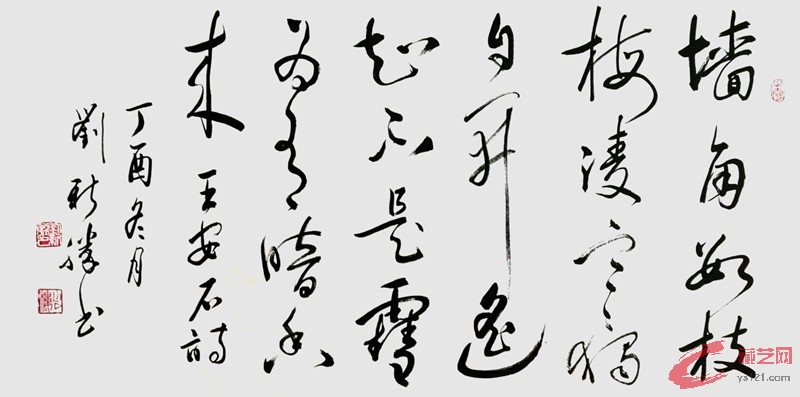 墙角数枝
梅凌寒独
自开遥
知不是雪
为有暗香
来 王安石诗
丁酉冬月
劉新勝书
艺网
ys121.com